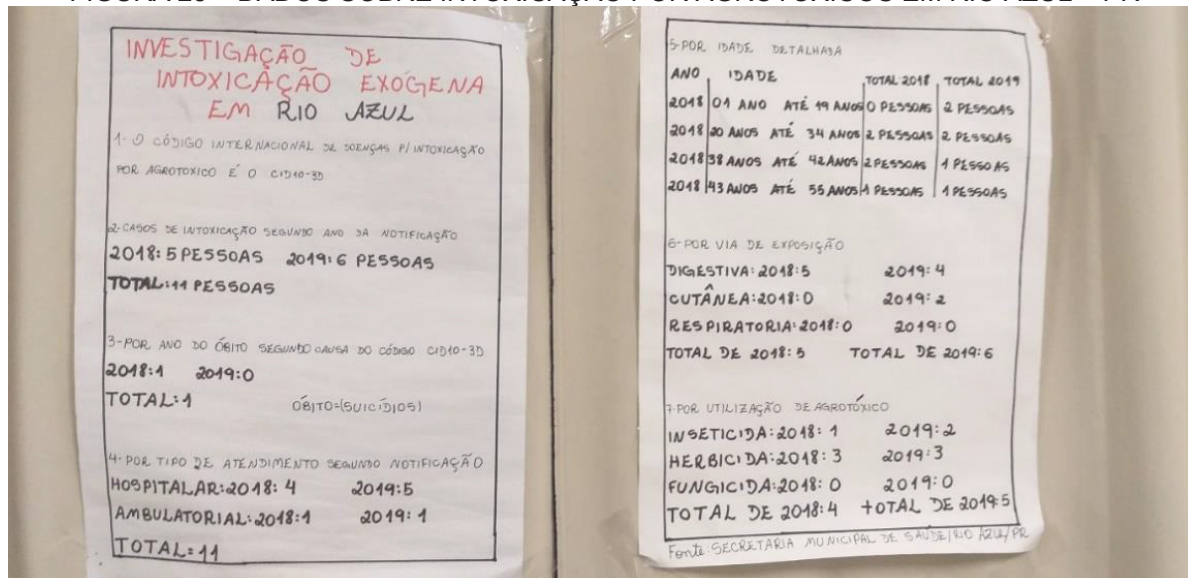 INVESTIGAÇÃO DE
INTOXICAÇÃO EXÓGENA
EM RIO AZUL
1- O CÓDIGO INTERNACIONAL DE DOENÇAS P/ INTOXICAÇÃO
POR AGROTOXICO É O CID10-3D
2-CASOS DE INTOXICAÇÃO SEGUNDO ANO DA NOTIFICAÇÃO
2018: 5 PESSOAS 2019: 6 PESSOAS
TOTAL: 11 PESSOAS
3-POR ANO DO ÓBITO SEGUNDO CAUSA DO CÓDIGO CID10-3D
2018:1 2019:0
TOTAL:1 ÓBITO=(SUICÍDIOS)
4-POR TIPO DE ATENDIMENTO SEGUNDO NOTIFICAÇÃO
HOSPITALAR:2018: 4 2019:5
AMBULATORIAL:2018:1 2019: 1
TOTAL=11
5-POR IDADE DETALHADA
ANO IDADE TOTAL 2018 TOTAL 2019
2018 01 ANO ATÉ 19 ANOS 0 PESSOAS 2 PESSOAS
2018 20 ANOS ATÉ 34 ANOS 2 PESSOAS 2 PESSOAS
2018 38 ANOS ATÉ 42 ANOS 2 PESSOAS 1 PESSOAS
2018 43 ANOS ATÉ 55 ANOS 1 PESSOAS 1 PESSOAS
6-POR VIA DE EXPOSIÇÃO
DIGESTIVA: 2018:5 2019: 4
CUTÂNEA:2018:0 2019: 2
RESPIRATORIA: 2018: 0 2019: 0
TOTAL DE 2018: 5 TOTAL DE 2019: 6
7-POR UTILIZAÇÃO DE AGROTÓXICO
INSETICIDA:2018: 1 2019: 2
HERBICIDA:2018: 3 2019: 3
FUNGICIDA:2018: 0 2019: 0
TOTAL DE 2018: 4 TOTAL DE 2019:5
Fonte: SECRETARIA MUNICIPAL DE SAÚDE/RIO AZUL/PR